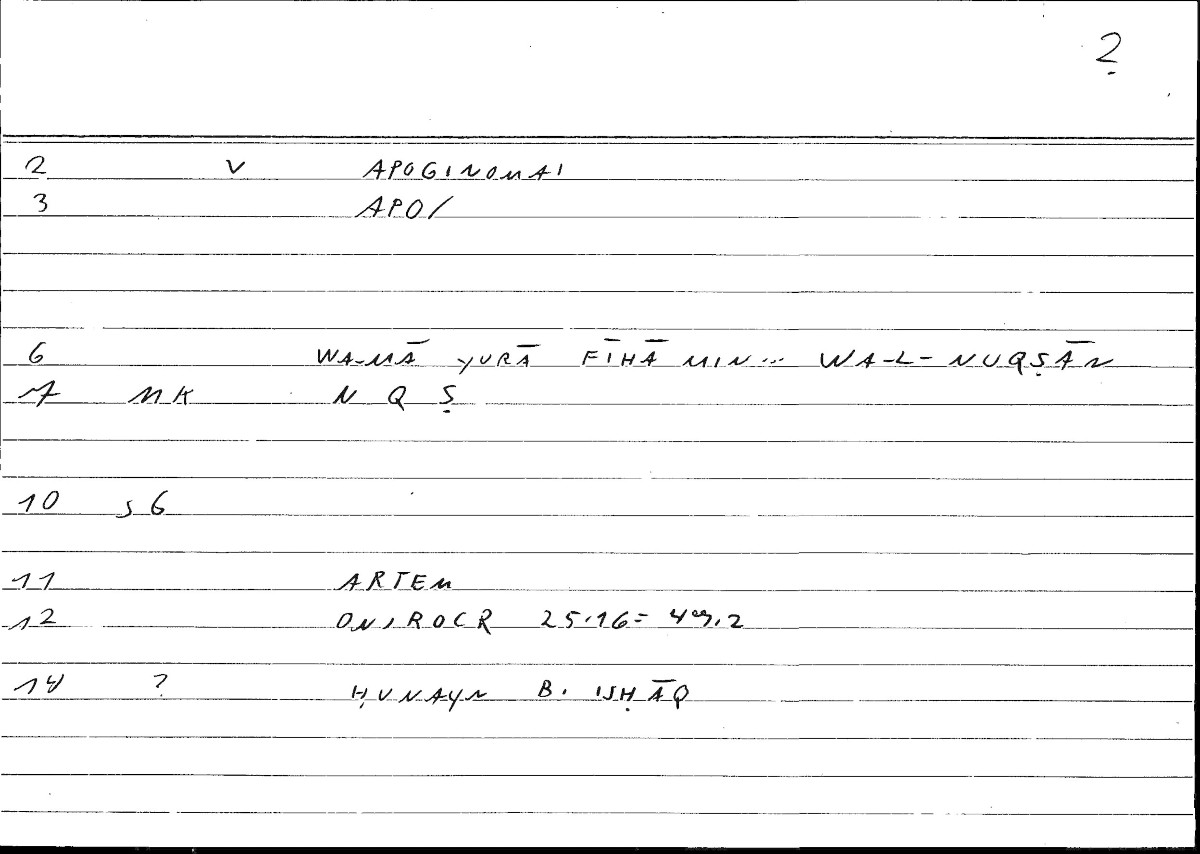 2
2 V APOGINOMAI
3 APO/
6 WA-MĀ YURĀ FĪHĀ MIN... WA-L-NUQṢĀN
7 MK N Q Ṣ
10 S6
11 ARTEM
12 ONIROCR 25.16=49.2
14 ? ḤUNAYN B. ISḤĀQ